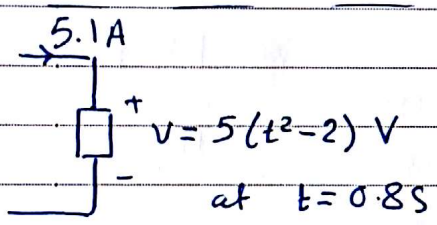 5.1A
+
v = 5(t²-2) V
-
at t = 0.8S